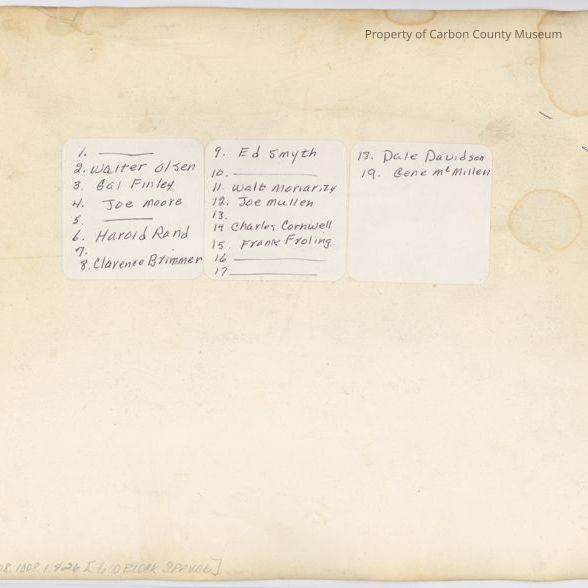 Property of Carbon County Museum
1. ______
2. Walter Olsen
3. Cal Finley
4. Joe Moore
5. ______
6. Harold Rand
7.
8. Clarence Brimmer
9. Ed Smyth
10. ______
11. Walt Moriarity
12. Joe Mullen
13.
14 Charles Cornwell
15. Frank Froling
16 ______
17 ______
18. Dale Davidson
19. Gene McMillen